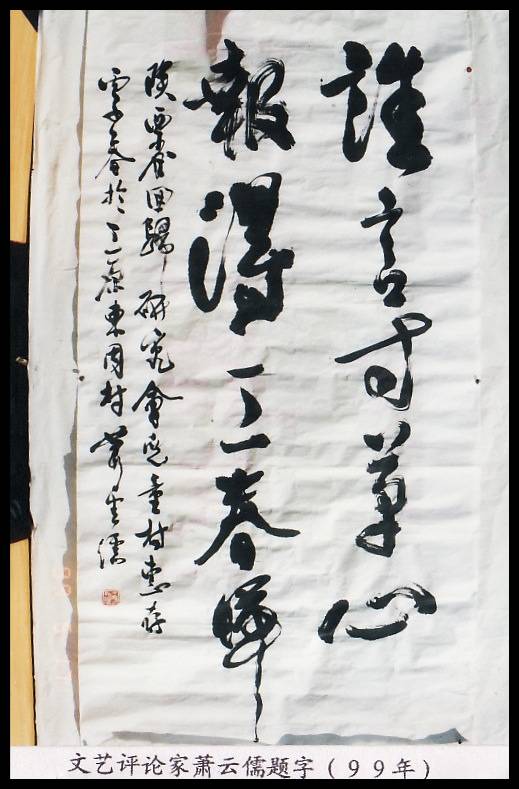 誰言寸草心
報得三春暉
陝西省回歸研究會兒童村惠存
春於三原東周村 蕭雲儒
文艺评论家萧云儒题字（９９年）